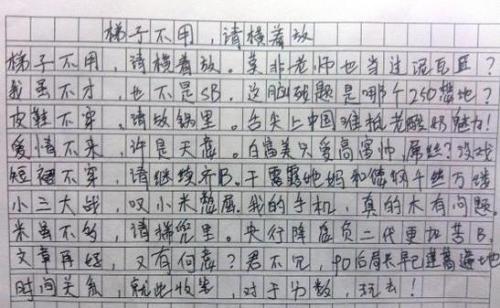 梯子不用，请横着放
梯子不用，请横着放。莫非老师也当过泥瓦匠？
我虽不才，也不是SB，这脑残题是哪个250想地？
皮鞋不穿，请放锅里。舌尖上中国难抵老酸奶魅力！
爱情不来，许是天意。白富美只爱高富帅，屌丝？没戏
短裙不穿，请继续齐B。干露露她妈和
小三大战，叹小米憋屈。我的手机，真的木有问题
米虽不多，请揣兜里。央行降息负二代更加苦B
文章再短，又有何意？君不见，90后局长早已遍
时间关系，就此收笔，对于分数，玩去！